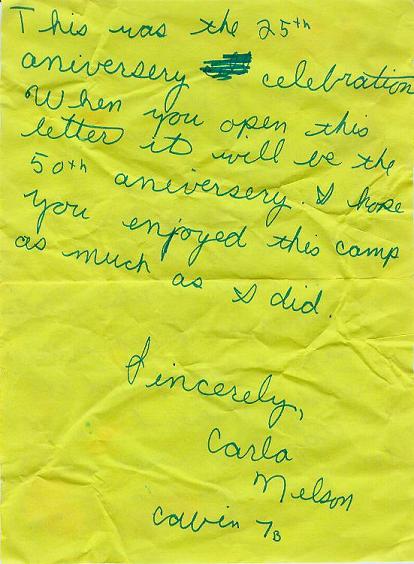 This was the 25th
aniversery celebration
When you open this
letter it will be the
50th aniversery. I hope
you enjoyed this camp
as much as I did.
Sincerely,
Carla
Nelson
cabin 7B